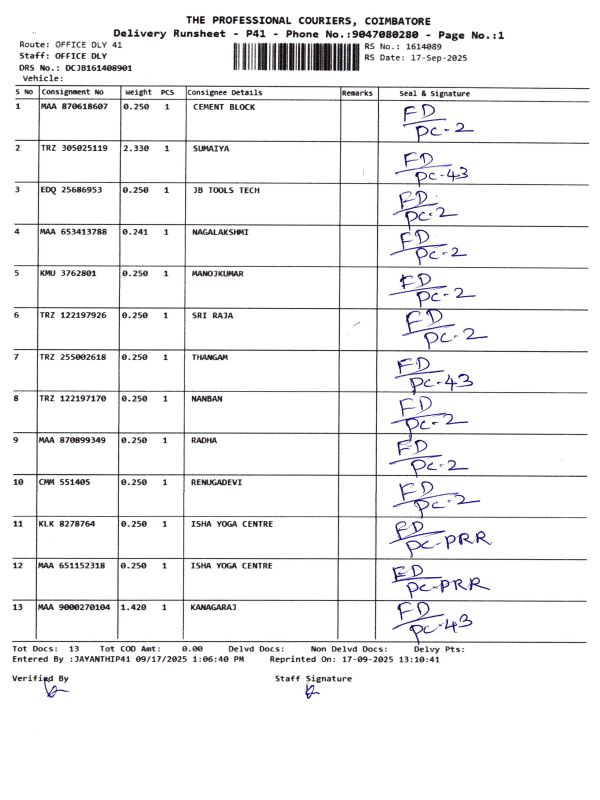 THE PROFESSIONAL COURIERS, COIMBATORE
Delivery Runsheet - P41 - Phone No.:9047080280 - Page No.:1
Route: OFFICE DLY 41 RS No.: 1614089
Staff: OFFICE DLY RS Date: 17-Sep-2025
DRS No.: DCJB161408901
Vehicle:
S No Consignment No Weight PCS Consignee Details Remarks Seal & Signature
1 MAA 870618607 0.250 1 CEMENT BLOCK FD
PC-2
2 TRZ 305025119 2.330 1 SUMAIYA FD
PC-43
3 EDQ 25686953 0.250 1 JB TOOLS TECH FD
PC-2
4 MAA 653413788 0.241 1 NAGALAKSHMI FD
PC-2
5 KMU 3762801 0.250 1 MANOJKUMAR FD
PC-2
6 TRZ 122197926 0.250 1 SRI RAJA FD
PC-2
7 TRZ 255002618 0.250 1 THANGAM FD
PC-43
8 TRZ 122197170 0.250 1 NANBAN FD
PC-2
9 MAA 870899349 0.250 1 RADHA FD
PC-2
10 CMM 551405 0.250 1 RENUGADEVI FD
PC-2
11 KLK 8278764 0.250 1 ISHA YOGA CENTRE FD
PC-PRR
12 MAA 651152318 0.250 1 ISHA YOGA CENTRE FD
PC-PRR
13 MAA 9000270104 1.420 1 KANAGARAJ FD
PC-43
Tot Docs: 13 Tot COD Amt: 0.00 Delvd Docs: Non Delvd Docs: Delvy Pts:
Entered By :JAYANTHIP41 09/17/2025 1:06:40 PM Reprinted On: 17-09-2025 13:10:41
Verified By Staff Signature